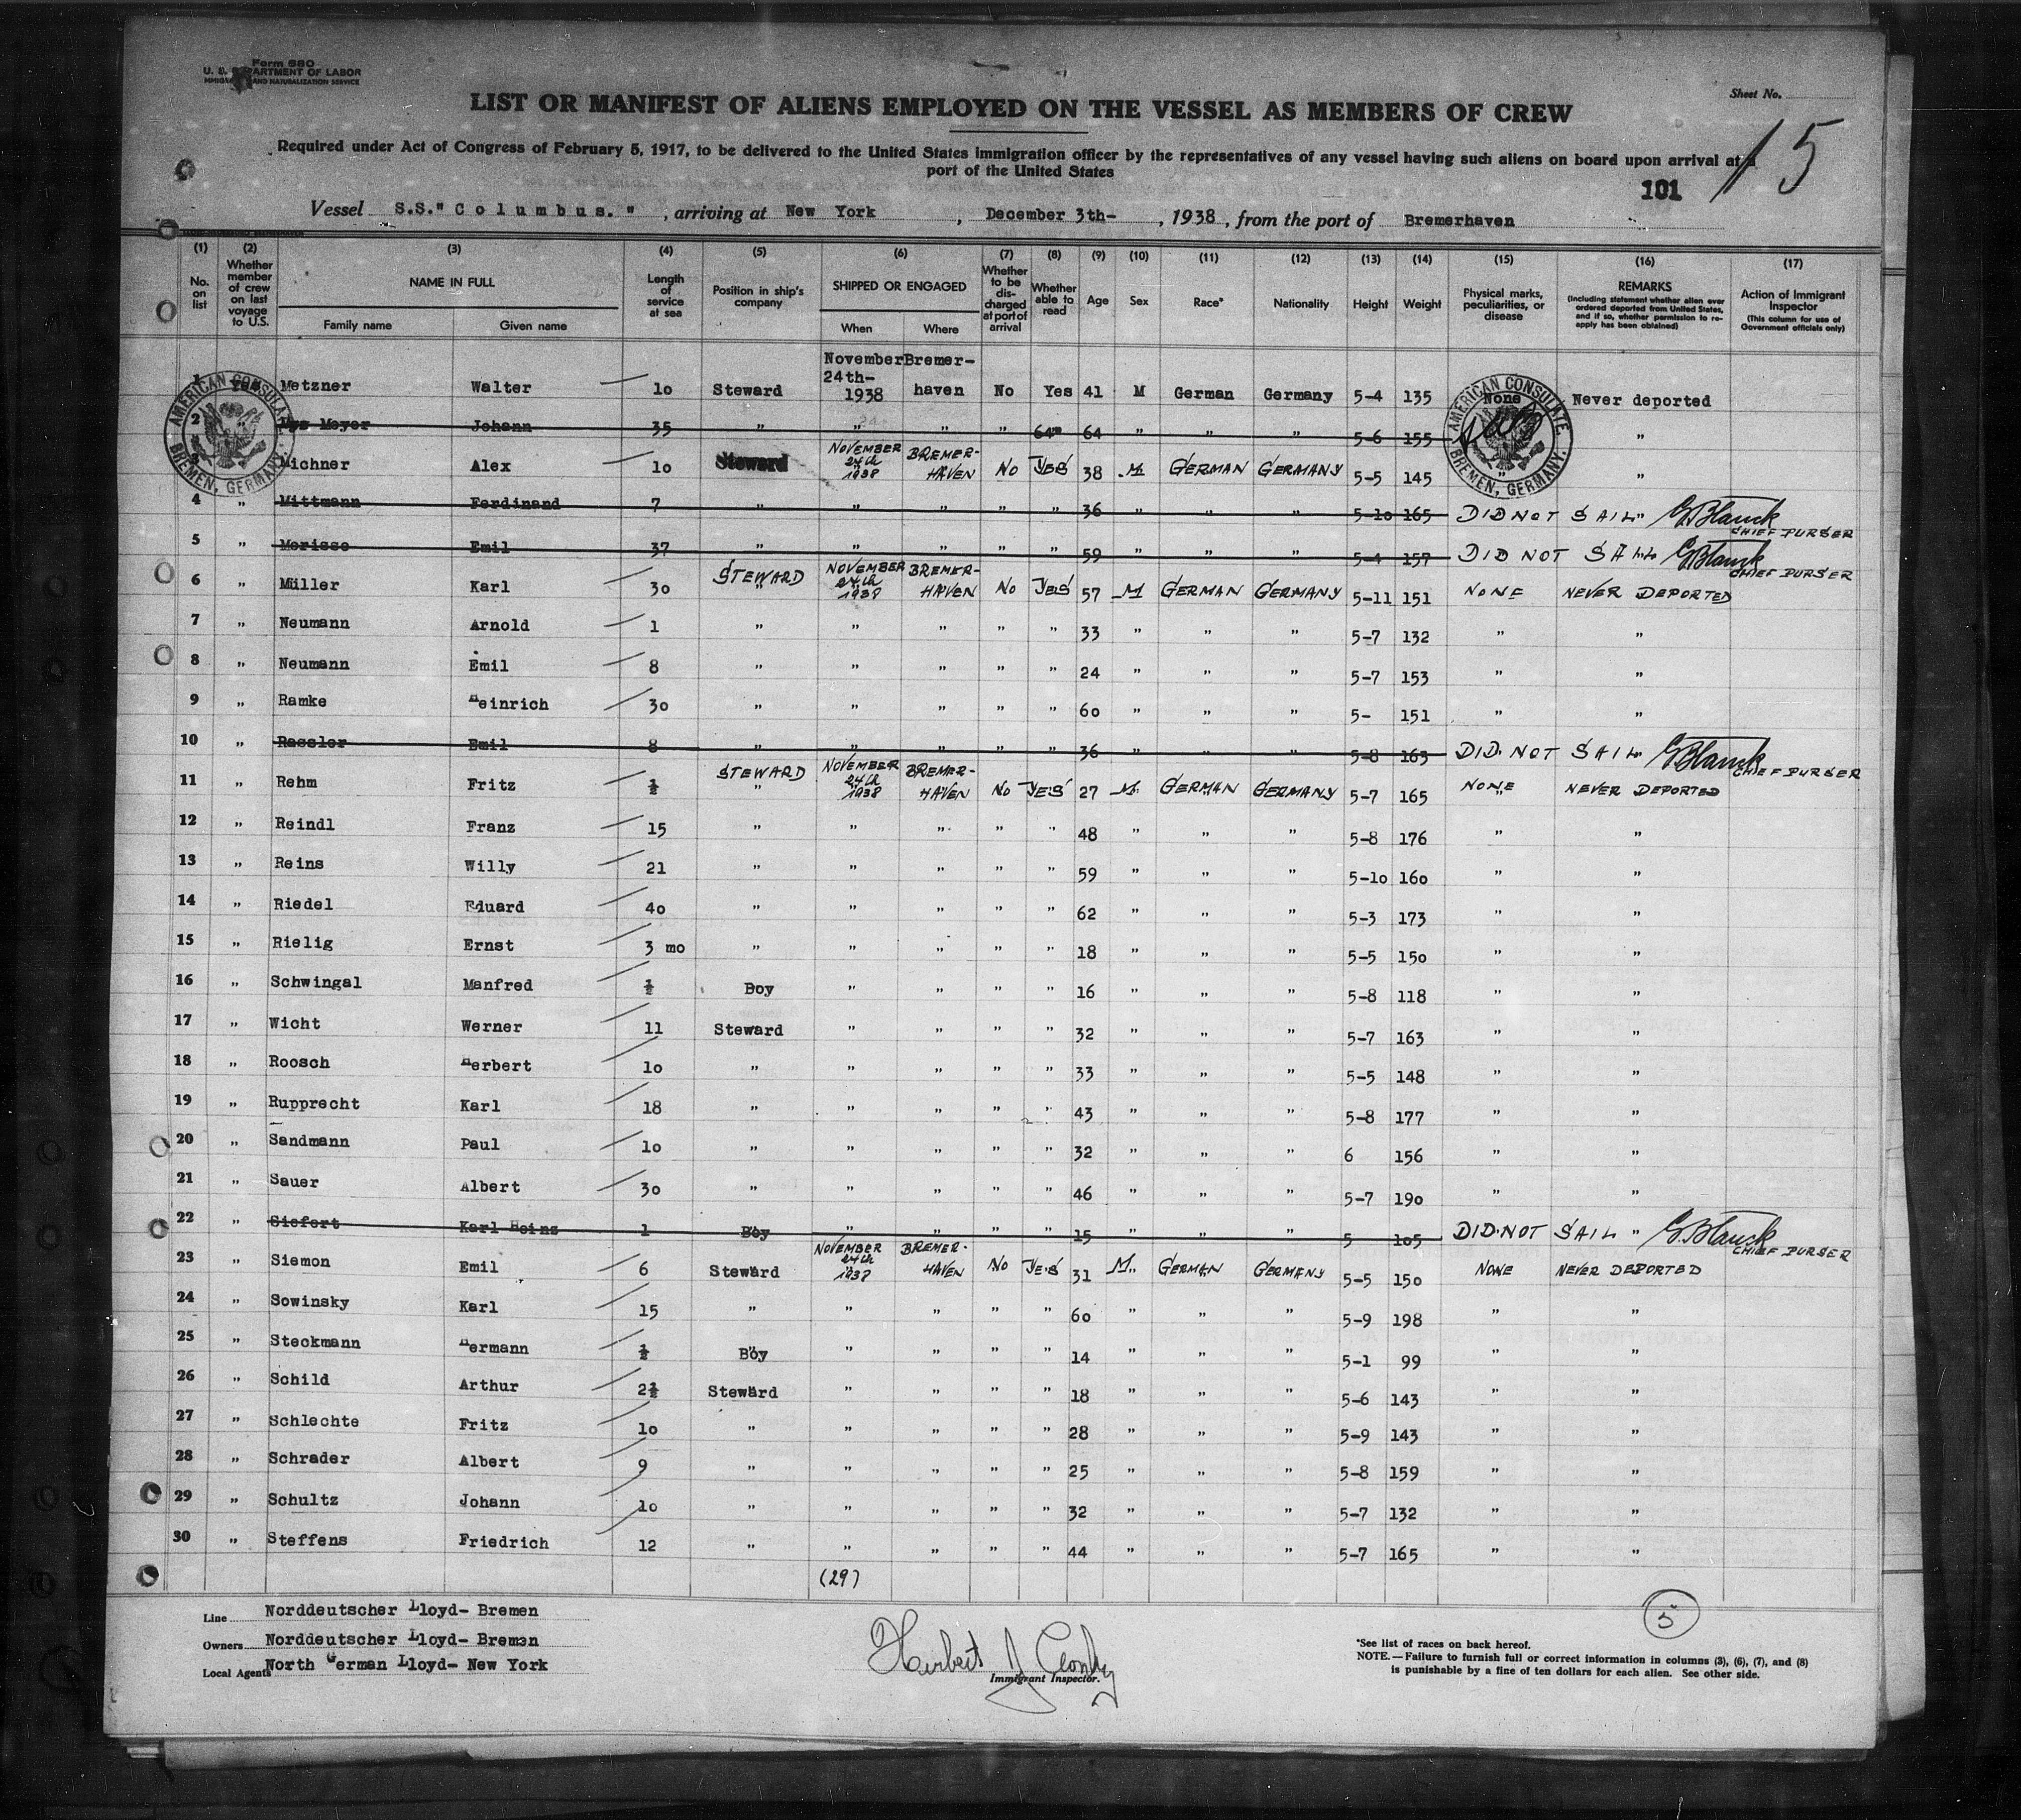 Form 680
U. S. DEPARTMENT OF LABOR
AND NATURALIZATION SERVICE
Sheet No.
LIST OR MANIFEST OF ALIENS EMPLOYED ON THE VESSEL AS MEMBERS OF CREW
Required under Act of Congress of February 5, 1917, to be delivered to the United States immigration officer by the representatives of any vessel having such aliens on board upon arrival at a
port of the United States
15
101
Vessel S.S." Columbus. " , arriving at New York , December 3th- , 1938 , from the port of Bremerhaven
(1) (2) (3) (4) (5) (6) (7) (8) (9) (10) (11) (12) (13) (14) (15) (16) (17)
No. on list Whether member of crew on last voyage to U.S. NAME IN FULL Family name Given name Length of service at sea Position in ship's company SHIPPED OR ENGAGED When Where Whether to be discharged at port of arrival Whether able to read Age Sex Race* Nationality Height Weight Physical marks, peculiarities, or disease REMARKS (Including statement whether alien ever ordered deported from United States, and if so, whether permission to reapply has been obtained) Action of Immigrant Inspector (This column for use of Government officials only)
1 Yes Metzner Walter 10 Steward November 24th- 1938 Bremer- haven No Yes 41 M German Germany 5-4 135 None Never deported
2 Meyer Johann 35 " " " " 64" 64 " " " 5-6 155 "
Michner Alex 10 Steward NOVEMBER 24th 1938 BREMER- HAVEN NO YES 38 M GERMAN GERMANY 5-5 145 " "
4 " Mittmann Ferdinand 7 " " " " " 36 " " " 5-10 165 DID NOT SAIL " G. Blanck CHIEF PURSER
5 " Morisse Emil 37 " " " " " 59 " " " 5-4 157 DID NOT SAIL G. Blanck CHIEF PURSER
6 " Müller Karl 30 STEWARD " NOVEMBER 24th 1938 BREMER- HAVEN NO YES 57 M GERMAN GERMANY 5-11 151 NONE NEVER DEPORTED
7 " Neumann Arnold 1 " " " " " 33 " " " 5-7 132 " "
8 " Neumann Emil 8 " " " " " 24 " " " 5-7 153 " "
9 " Ramke Heinrich 30 " " " " " 60 " " " 5- 151 " "
10 " Rassler Emil 8 " " " " " 36 " " " 5-8 163 DID NOT SAIL G. Blanck CHIEF PURSER
11 " Rehm Fritz ½ STEWARD " NOVEMBER 24th 1938 BREMER- HAVEN NO YES 27 M. GERMAN GERMANY 5-7 165 NONE NEVER DEPORTED
12 " Reindl Franz 15 " " " " " 48 " " " 5-8 176 " "
13 " Reins Willy 21 " " " " " 59 " " " 5-10 160 " "
14 " Riedel Eduard 40 " " " " " 62 " " " 5-3 173 " "
15 " Rielig Ernst 3 mo " " " " " 18 " " " 5-5 150 " "
16 " Schwingal Manfred ½ Boy " " " " 16 " " " 5-8 118 " "
17 " Wicht Werner 11 Steward " " " " 32 " " " 5-7 163 " "
18 " Roosch Herbert 10 " " " " " 33 " " " 5-5 148 " "
19 " Rupprecht Karl 18 " " " " " 43 " " " 5-8 177 " "
20 " Sandmann Paul 10 " " " " " 32 " " " 6 156 " "
21 " Sauer Albert 30 " " " " " 46 " " " 5-7 190 " "
22 " Siefert Karl Heinz 1 Boy " " " " 15 " " " 5 105 DID NOT SAIL " G. Blanck CHIEF PURSER
23 " Siemon Emil 6 Steward NOVEMBER 24th 1938 BREMER- HAVEN NO YES 31 M " GERMAN GERMANY 5-5 150 NONE NEVER DEPORTED
24 " Sowinsky Karl 15 " " " " " 60 " " " 5-9 198 " "
25 " Steckmann Hermann ½ Boy " " " " 14 " " " 5-1 99 " "
26 " Schild Arthur 2½ Steward " " " " 18 " " " 5-6 143 " "
27 " Schlechte Fritz 10 " " " " " 28 " " " 5-9 143 " "
28 " Schrader Albert 9 " " " " " 25 " " " 5-8 159 " "
29 " Schultz Johann 10 " " " " " 32 " " " 5-7 132 " "
30 " Steffens Friedrich 12 " " " " " 44 " " " 5-7 165 " "
AMERICAN CONSULATE. BREMEN, GERMANY.
AMERICAN CONSULATE. BREMEN, GERMANY.
(29)
5
Line Norddeutscher Lloyd- Bremen
Owners Norddeutscher Lloyd- Bremen
Local Agents North German Lloyd- New York
Herbert J
Immigrant Inspector.
*See list of races on back hereof.
NOTE.—Failure to furnish full or correct information in columns (3), (6), (7), and (8)
is punishable by a fine of ten dollars for each alien. See other side.